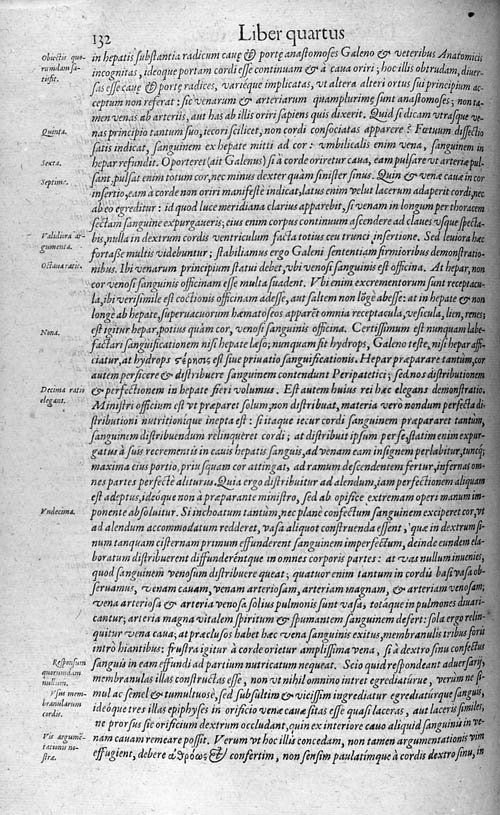 132
Liber quartus
in hepatis substantia radicum cauę & portę anastomoses Galeno & veteribus Anatomicis
incognitas, ideoque portam cordi esse continuam & à caua oriri; hoc illis obtrudam, diuer-
sas esse cauę & portę radices, varièque implicatas, vt altera alteri ortus sui principium ac-
ceptum non referat: sic venarum & arteriarum quamplurimę sunt anastomoses; non ta-
men venas ab arteriis, aut has ab illis oriri sapiens quis dixerit. Quid si dicam vtrasque ve-
nas principio tantum suo, iecori scilicet, non cordi consociatas apparere? Fœtuum dissectio
satis indicat, sanguinem ex hepate mitti ad cor: vmbilicalis enim vena, sanguinem in
hepar refundit. Oporteret (ait Galenus) si à corde oriretur caua, eam pulsare vt arterię pul-
sant, pulsat enim totum cor, nec minus dexter quàm sinister sinus. Quin & venæ cauæ in cor
insertio, eam à corde non oriri manifestè indicat, latus enim velut lacerum adaperit cordi, nec
ab eo egreditur: id quod luce meridiana clarius apparebit, si venam in longum per thoracem
sectam sanguine expurgaueris; eius enim corpus continuum ascendere ad claues vsque specta-
bis, nulla in dextrum cordis ventriculum facta totius ceu trunci insertione. Sed leuiora hæc
fortasse multis videbuntur; stabiliamus ergo Galeni sententiam firmioribus demonstratio-
nibus. Ibi venarum principium statui debet, vbi venosi sanguinis est officina. At hepar, non
cor venosi sanguinis officinam esse multa suadent. Vbi enim excrementorum sunt receptacu-
la, ibi verisimile est coctionis officinam adesse, aut saltem non lōgè abesse: at in hepate & non
longè ab hepate, superuacuorum hæmatoseos apparēt omnia receptacula, vesicula, lien, renes;
est igitur hepar, potius quàm cor, venosi sanguinis officina. Certissimum est nunquam labe-
factari sanguificationem nisi hepate læso; nunquam fit hydrops, Galeno teste, nisi hepar affi-
ciatur, at hydrops στέρησις est siue priuatio sanguificationis. Hepar præparare tantùm, cor
autem perficere & distribuere sanguinem contendunt Peripatetici; sed nos distributionem
& perfectionem in hepate fieri volumus. Est autem huius rei hæc elegans demonstratio.
Ministri officium est vt præparet solum, non distribuat, materia verò nondum perfecta di-
stributioni nutritionique inepta est: si itaque iecur cordi sanguinem præpararet tantùm,
sanguinem distribuendum relinqueret cordi; at distribuit ipsum per se, statim enim expur-
gatus à suis recrementis in cauis hepatis sanguis, ad venam eam insignem perlabitur, tuncque
maxima eius portio, priusquam cor attingat, ad ramum descendentem fertur, infernas om-
nes partes perfectè aliturus. Quia ergo distribuitur ad alendum, iam perfectionem aliquam
est adeptus, ideóque non à præparante ministro, sed ab opifice extremam operi manum im-
ponente absoluitur. Si inchoatum tantùm, nec planè confectum sanguinem exciperet cor, vt
ad alendum accommodatum redderet, vasa aliquot construenda essent, quæ in dextrum si-
num tanquam cisternam primum effunderent sanguinem imperfectum, deinde eundem ela-
boratum distribuerent diffunderéntque in omnes corporis partes: at vas nullum inuenies,
quod sanguinem venosum distribuere queat; quatuor enim tantum in cordis basi vasa ob-
seruamus, venam cauam, venam arteriosam, arteriam magnam, & arteriam venosam;
vena arteriosa & arteria venosa solius pulmonis sunt vasa, totáque in pulmones diuari-
cantur; arteria magna vitalem spiritum & spumantem sanguinem defert: sola ergo relin-
quitur vena caua; at præclusos habet hæc vena sanguinis exitus, membranulis tribus foris
intrò hiantibus: frustra igitur à corde orietur amplissima vena, si à dextro sinu confectus
sanguis in eam effundi ad partium nutricatum nequeat. Scio quid respondeant aduersarij,
membranulas illas constructas esse, non vt nihil omnino intret egrediatúrue, verùm ne si-
mul ac semel & tumultuosè, sed subsultim & vicissim ingrediatur egrediatúrque sanguis,
ideóque tres illas epiphyses in orificio venæ cauæ sitas esse quasi laceras, aut laceris similes,
ne prorsus sic orificium dextrum occludant, quin ex interiore cauo aliquid sanguinis in ve-
nam cauam remeare possit. Verum vt hoc illis concedam, non tamen argumentationis vim
effugient, debere ἀθρόως & confertim, non sensim paulatímque à cordis dextro sinu, in
Obiectio quo-
rundam sa-
tisfit.
Quinta.
Sexta.
Septima.
Validiora ar-
gumenta.
Octaua ratio.
Nona.
Decima ratio
elegans.
Vndecima.
Responsum
quorundam
nullum.
Vsus mem-
branularum
cordis.
Vis argumē-
tationis no-
stræ.